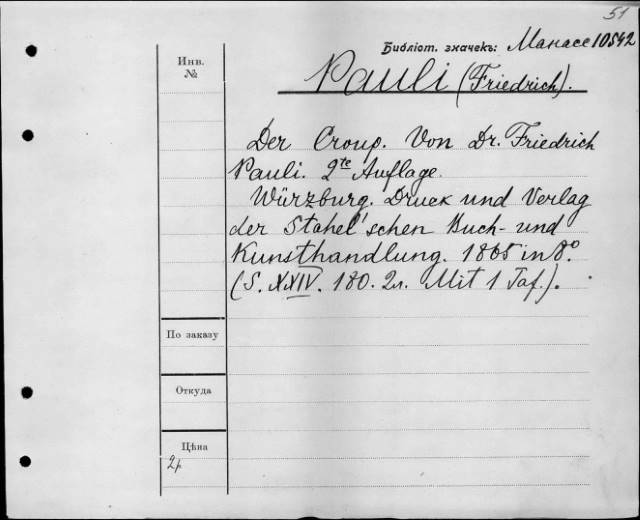 51
Библіот. значекъ: Манасе 10542
Инв.
№
Pauli (Friedrich).
Der Croup. Von Dr. Friedrich
Pauli. 2te Auflage.
Würzburg. Druck und Verlag
der Stahel'schen Buch- und
Kunsthandlung. 1865 in 8º.
(S. XXIV. 180. 2л. Mit 1 Taf.).
По заказу
Откуда
Цѣна
2р